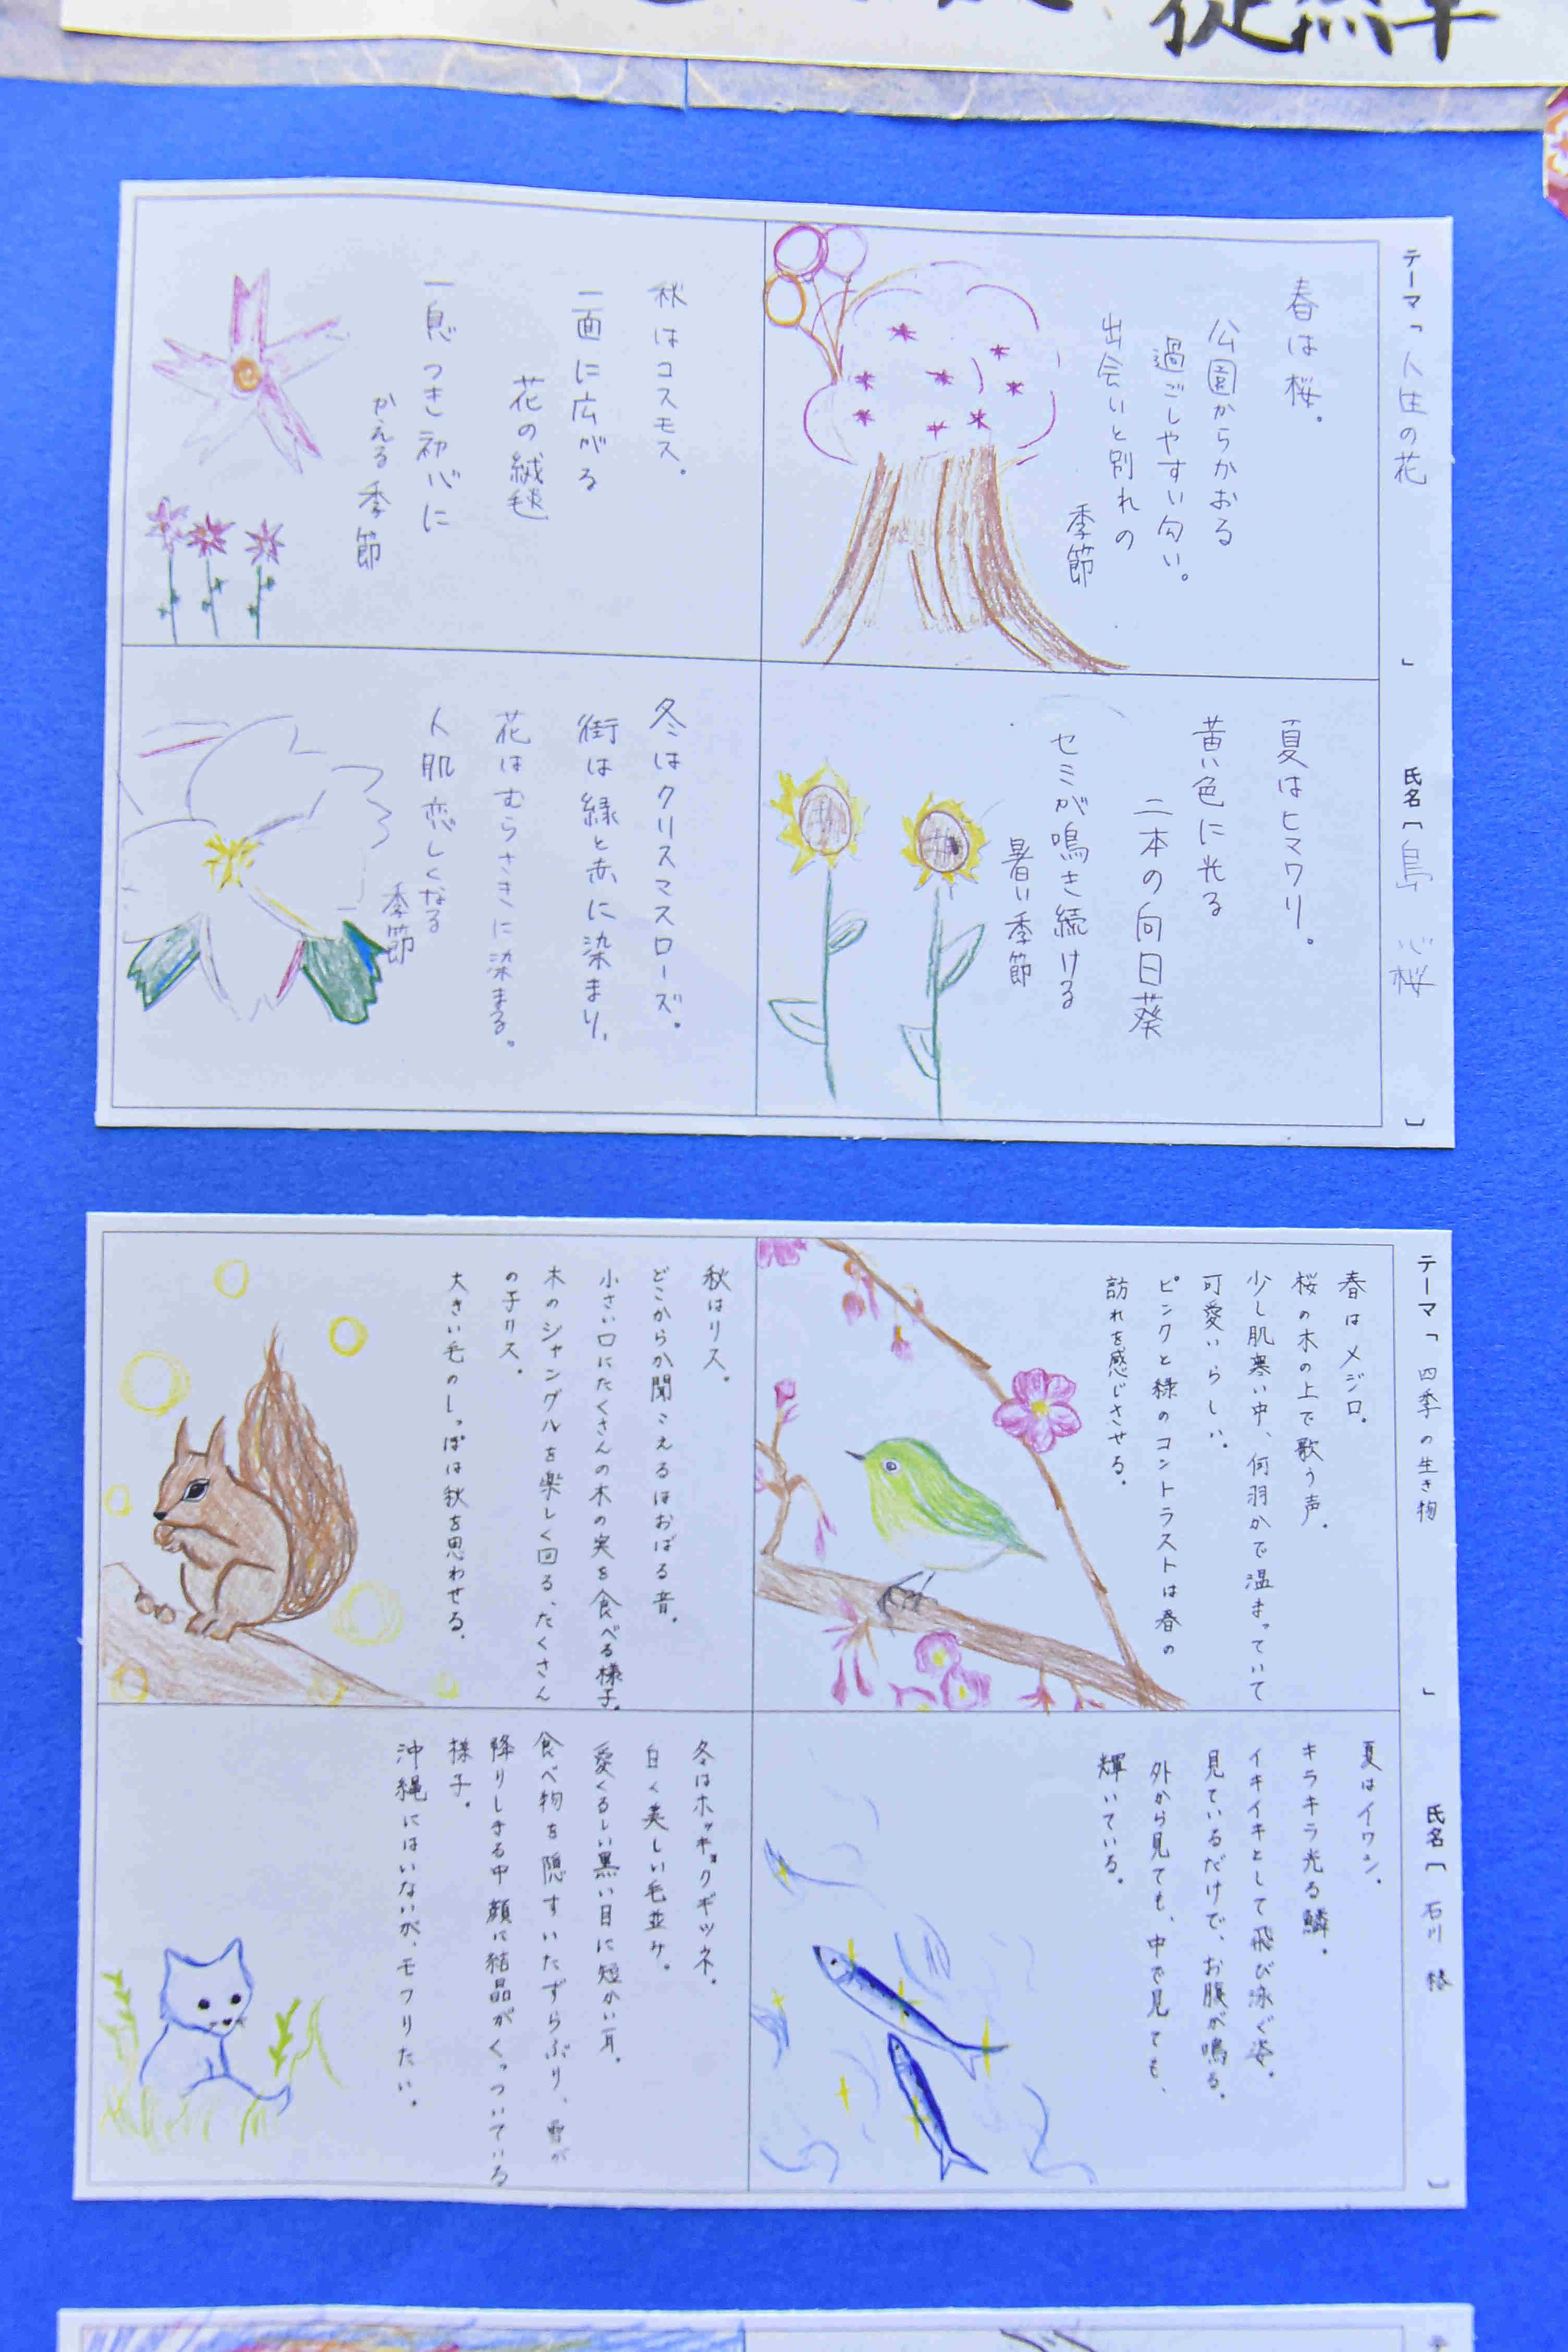 テーマ「人生の花」
氏名〔島 心桜〕
春は桜。
公園からかおる
過ごしやすい匂い。
出会いと別れの
季節
夏はヒマワリ。
黄い色に光る
二本の向日葵
セミが鳴き続ける
暑い季節
秋はコスモス。
一面に広がる
花の絨毯
一息つき初心に
かえる季節
冬はクリスマスローズ。
街は緑と赤に染まり、
花はむらさきに染まる。
人肌恋しくなる
季節
テーマ「四季の生き物」
氏名〔石川 椿〕
春はメジロ。
桜の木の上で歌う声。
少し肌寒い中、何羽かで温まっていて
可愛いらしい。
ピンクと緑のコントラストは春の
訪れを感じさせる。
夏はイワシ。
キラキラ光る鱗。
イキイキとして飛び泳ぐ姿。
見ているだけで、お腹が鳴る。
外から見ても、中で見ても、
輝いている。
秋はリス。
どこからか聞こえるほおばる音。
小さい口にたくさんの木の実を食べる様子。
木のジャングルを楽しく回る、たくさん
の子リス。
大きい毛のしっぽは秋を思わせる。
冬はホッキョクギツネ。
白く美しい毛並み。
愛くるしい黒い目に短かい耳。
食べ物を隠すいたずらぶり、雪が
降りしきる中顔に結晶がくっついている
様子。
沖縄にはいないが、モフりたい。